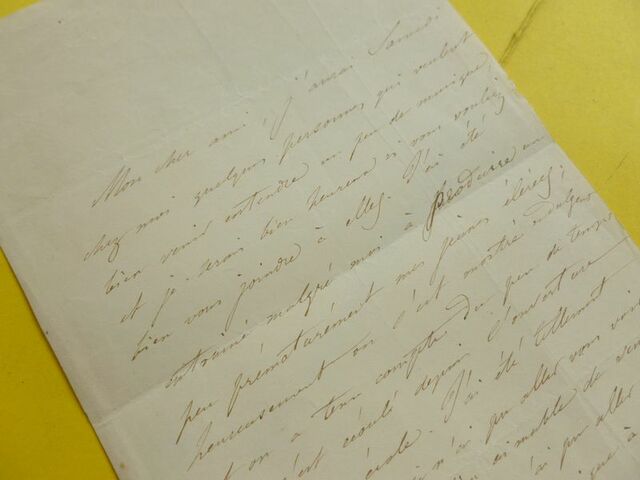 Mon cher ami, j'aurai Samedi
chez moi quelques personnes qui veulent
bien venir entendre un peu de musique,
et je serais bien heureux si vous vouliez
bien vous joindre à elles. J'ai été
entrainé malgré moi à produire un
peu prématurément mes jeunes élèves;
heureusement on s'est montré indulgent
et on a tenu compte du peu de temps
s'est écoulé depuis l'ouverture
école. J'ai été tellement
n'ai pu aller vous voir
aimable de
ai pu aller
à